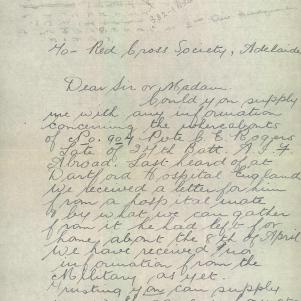 To- Red Cross Society, Adelaide
Dear Sir or Madam
Could you supply
me with any information
concerning the whereabouts
of No. 904 Pvte E. Rogers
late of 27th Batt. A.I.F
Abroad. Last heard of at
Dartford Hospital England
We received a letter for him
from a hospital mate
& by what we can gather
from it he had left for
home about the 9th of April
We have received no
information from the
Military as yet.
Trusting you can supply